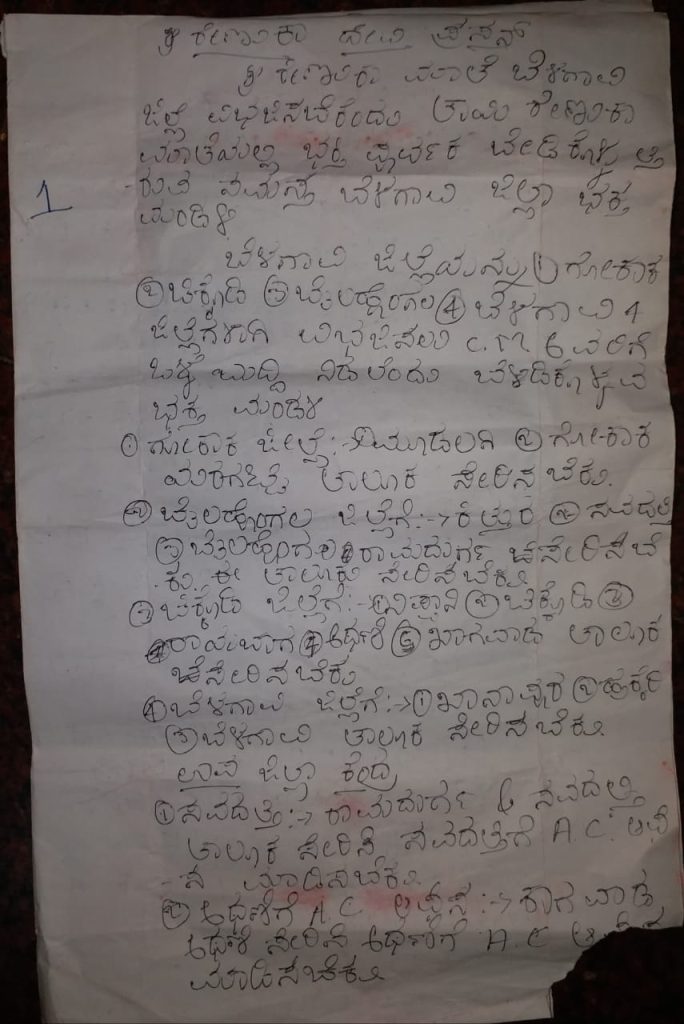 ಶ್ರೀ ರೇಣುಕಾ ದೇವಿ ಪ್ರಸನ್
ಶ್ರೀ ರೇಣುಕಾ ಮಾತೆ ಬೆಳಗಾವಿ
ಜಿಲ್ಲೆ ವಿಭಜಿಸಬೆಕೆಂದು ತಾಯಿ ರೇಣುಕಾ
ಮಾತೆಯಲ್ಲಿ ಭಕ್ತಿ ಪೂರ್ವಕ ಬೇಡಿಕೊಳ್ಳುತ್ತಿ
ರುವ ಸಮಸ್ತ ಬೆಳಗಾವಿ ಜಿಲ್ಲಾ ಭಕ್ತ
1
ಮಂಡಳಿ
ಬೆಳಗಾವಿ ಜಿಲ್ಲೆಯನ್ನು ① ಗೋಕಾಕ
② ಚಿಕ್ಕೋಡಿ ③ ಬೈಲಹೊಂಗಲ ④ ಬೆಳಗಾವಿ 4
ಜಿಲ್ಲೆಗಳಾಗಿ ವಿಭಜಿಸಲು C.M ರವರಿಗೆ
ಒಳ್ಳೆ ಬುದ್ದಿ ನಿಡಲೆಂದು ಬೆಡಿಕೊಳ್ಳುವ
ಭಕ್ತ ಮಂಡಳಿ
① ಗೋಕಾಕ ಜಿಲ್ಲೆ :→ ಮೂಡಲಗಿ ② ಗೋಕಾಕ
ಯರಗಟ್ಟಿ ತಾಲೂಕ ಸೇರಿಸಬೆಕು.
② ಬೈಲಹೊಂಗಲ ಜಿಲ್ಲೆಗೆ :→ ಕಿತ್ತೂರ ② ಸವದತ್ತಿ
③ ಬೈಲಹೊಂಗಲ ④ ರಾಮದುರ್ಗ ಸೇರಿಸಬೆ
ಕು. ಈ ತಾಲೂಕು ಸೇರಿಸಬೆಕು
③ ಚಿಕ್ಕೋಡಿ ಜಿಲ್ಲೆಗೆ :→ ನಿಪ್ಪಾನಿ ② ಚಿಕ್ಕೋಡಿ ③
ರಾಯಬಾಗ ④ ಅಥಣಿ ⑤ ಖಾಗವಾಡ ತಾಲೂಕ
ಸೇರಿಸಬೆಕು
④ ಬೆಳಗಾವಿ ಜಿಲ್ಲೆಗೆ :→ ① ಖಾನಾಪೂರ ② ಹುಕ್ಕೇರಿ
③ ಬೆಳಗಾವಿ ತಾಲೂಕ ಸೇರಿಸಬೆಕು.
ಉಪ ಜಿಲ್ಲಾ ಕೇಂದ್ರ
① ಸವದತ್ತಿ :→ ರಾಮದುರ್ಗ & ಸವದತ್ತಿ
ತಾಲೂಕ ಸೇರಿಸಿ ಸವದತ್ತಿಗೆ A.C. ಆಫಿ
ಸ ಮಾಡಿಸಬೆಕು.
② ಅಥಣಿಗೆ A.C. ಆಫೀಸ :→ ಕಾಗವಾಡ
ಅಥಣಿ ಸೇರಿಸಿ ಅಥಣಿಗೆ A.C
ಮಾಡಿಸಬೆಕು